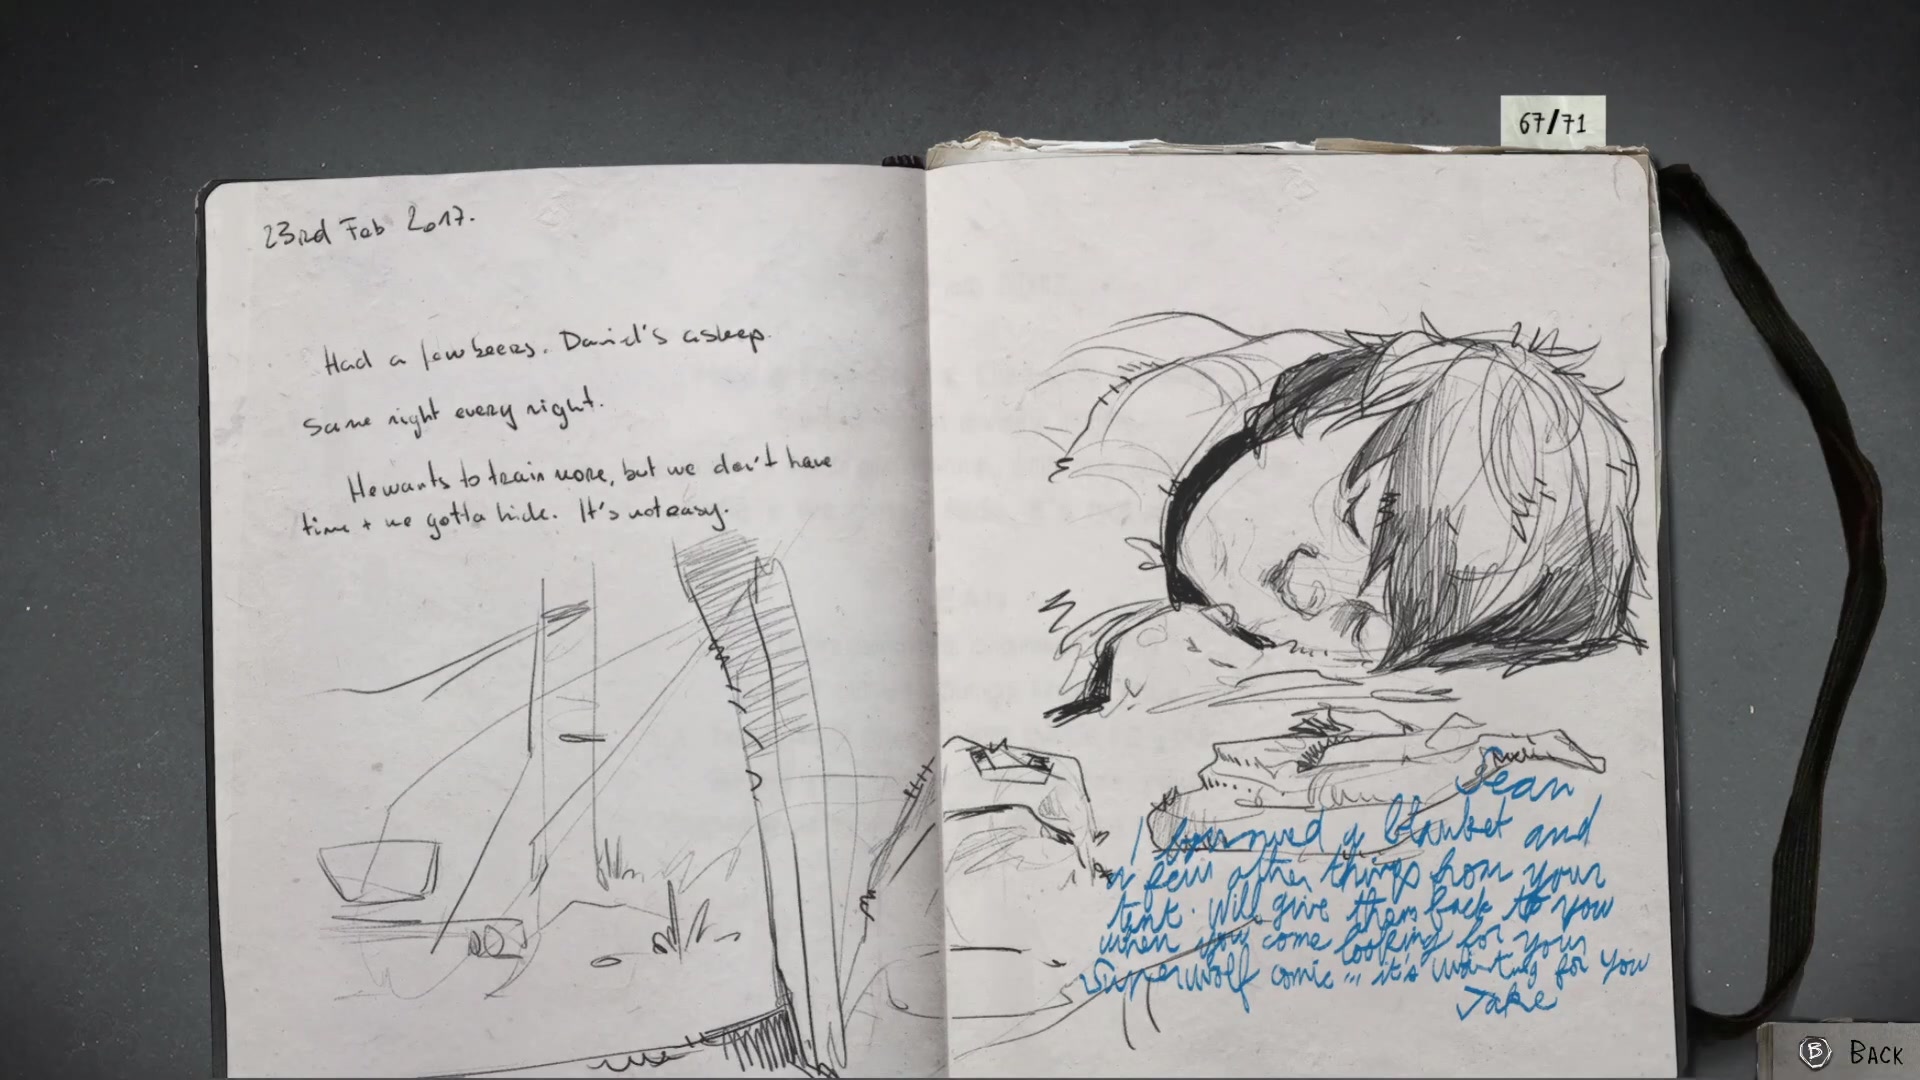 67/71
23rd Feb 2017.
Had a few beers. Daniel's asleep.
Same night every night.
He wants to train more, but we don't have
time + we gotta hide. It's not easy.
Sean
I borrowed a blanket and
a few other things from your
tent. Will give them back to you
when you come looking for your
Superwolf comic... it's waiting for you
Jake
B BACK